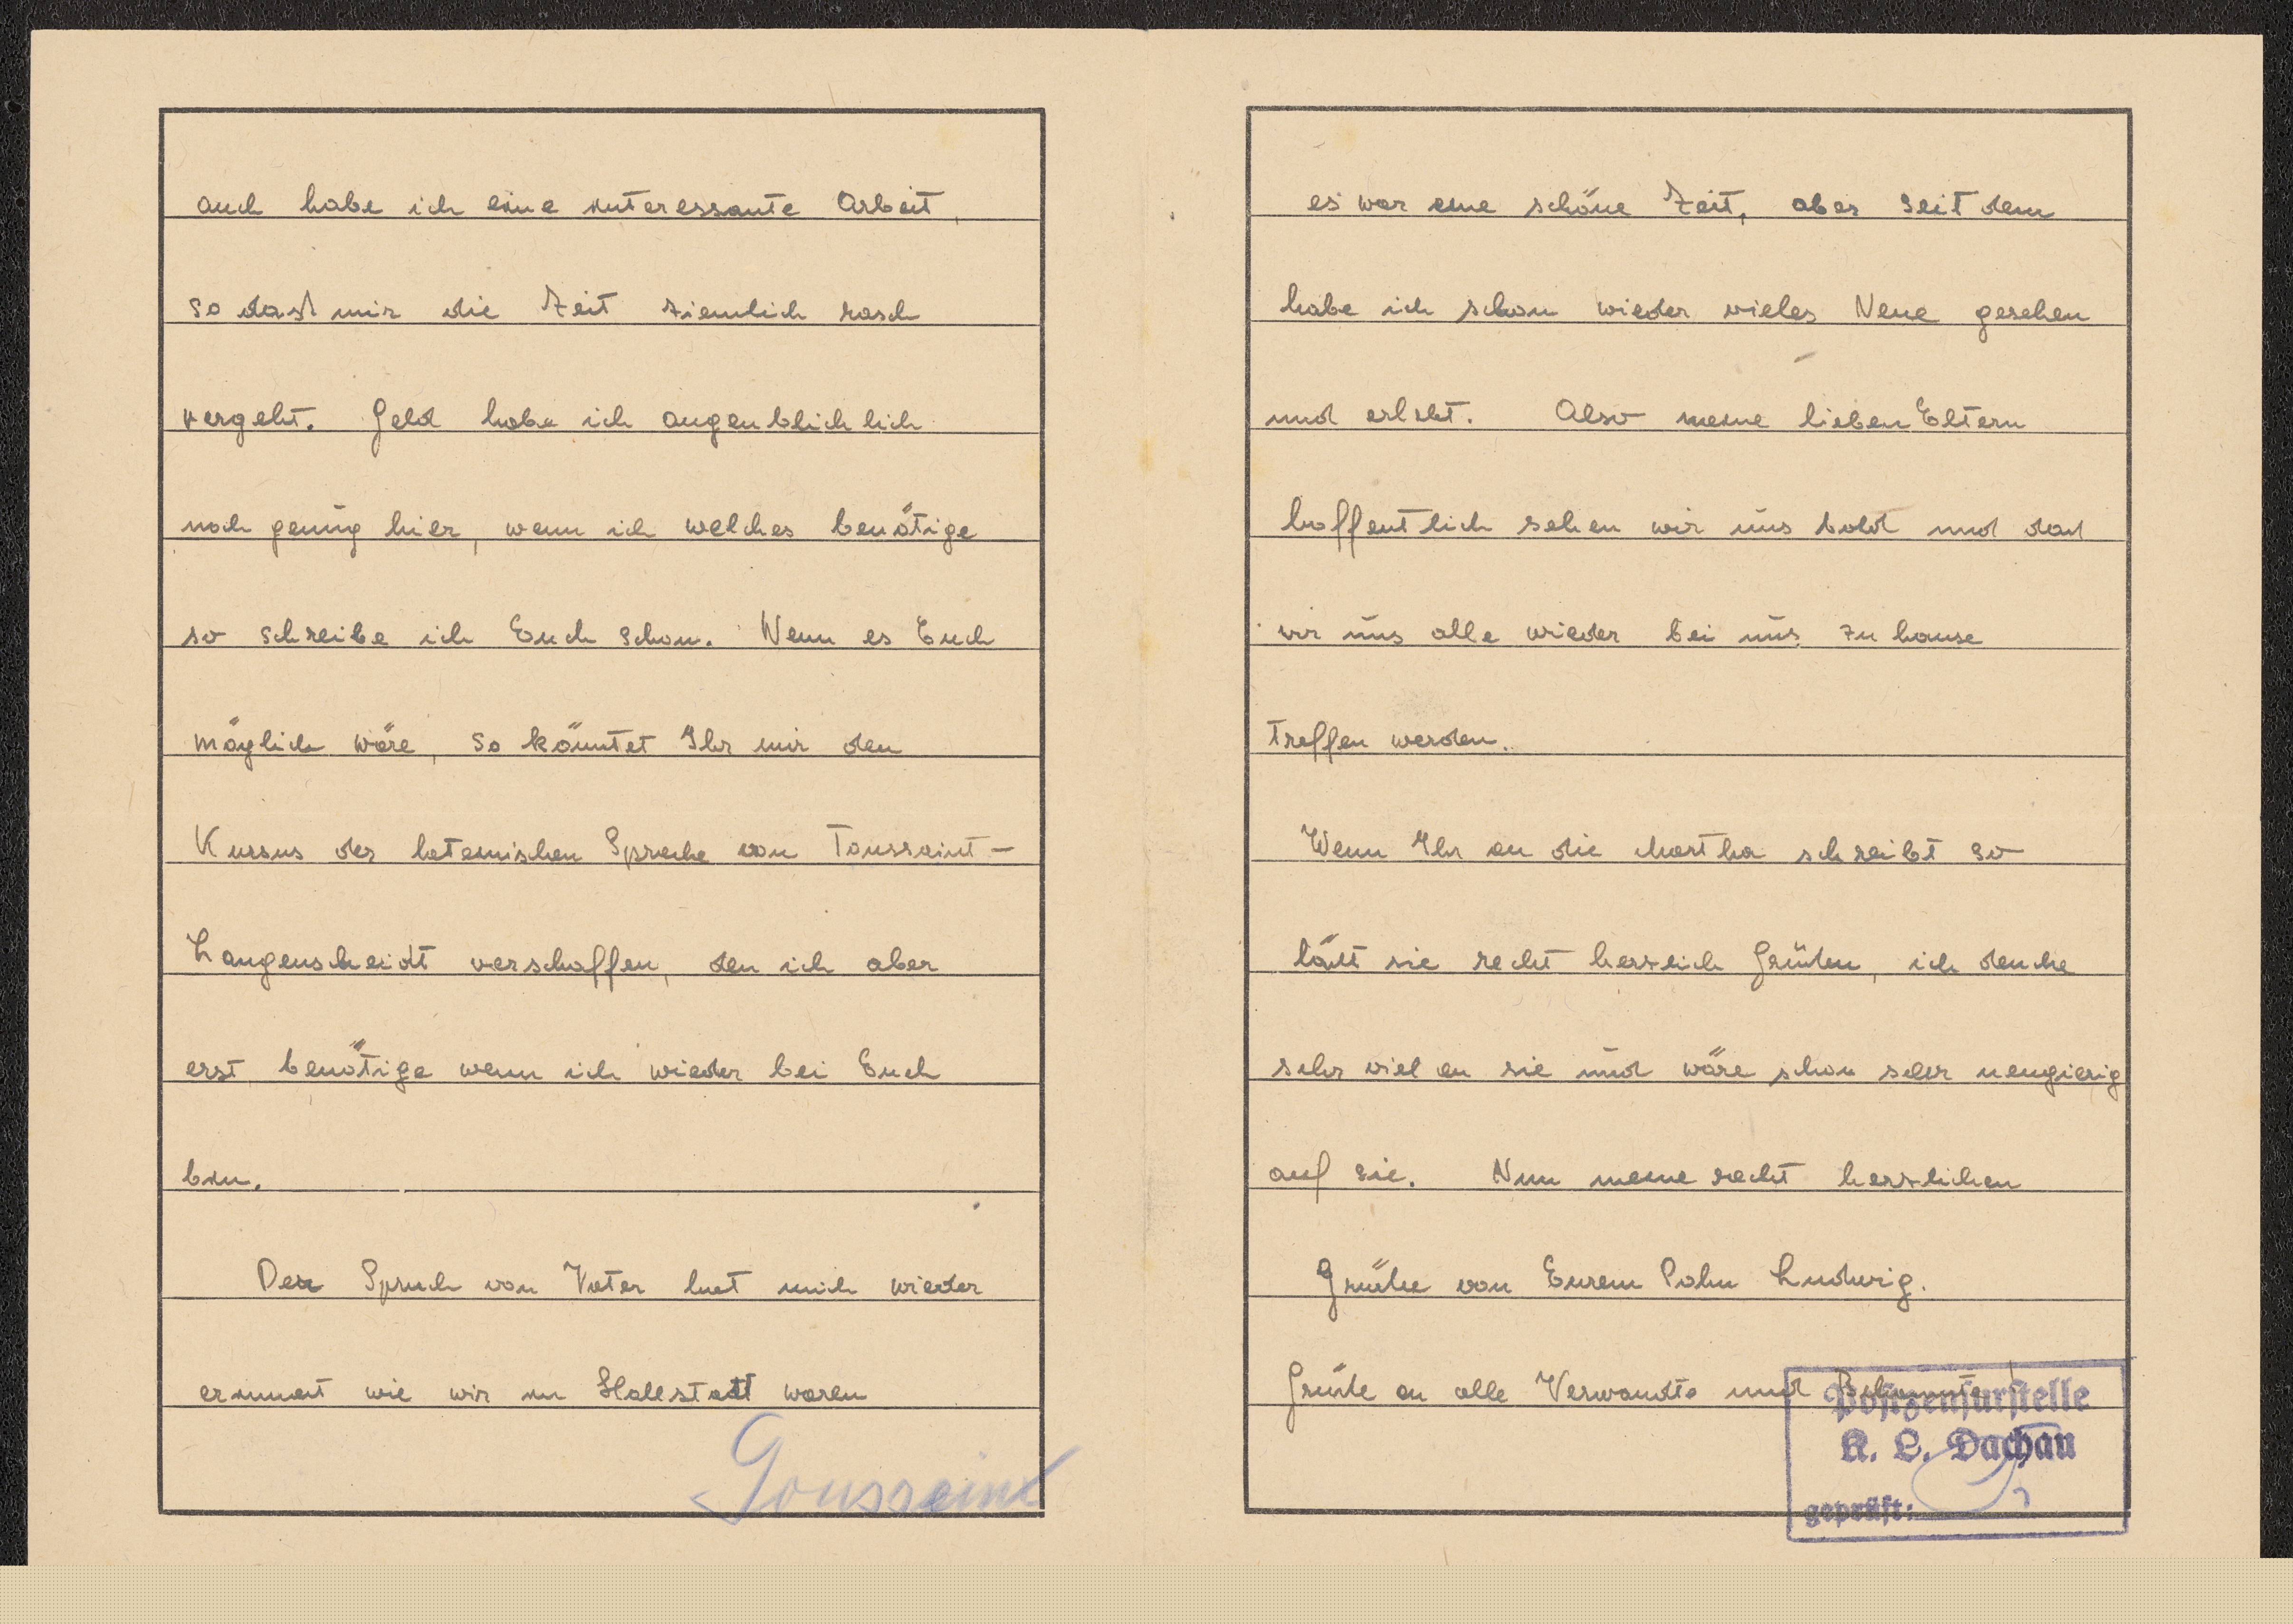 auch habe ich eine interessante Arbeit,
so daß mir die Zeit ziemlich rasch
vergeht. Geld habe ich augenblichlich
noch genug hier, wenn ich welches benötige
so schreibe ich Euch schon. Wenn es Euch
möglich wäre, so könntet Ihr mir den
Kursus der lateinischen Sprache von Toussaint-
Langenscheidt verschaffen, den ich aber
erst benötige wenn ich wieder bei Euch
bin.
Der Spruch von Vater hat mich wieder
erinnert wie wir in Hallstatt waren
Toussaint
es war eine schöne Zeit, aber seit dem
habe ich schon wieder vieles Neue gesehen
und erlebt. Also meine lieben Eltern
hoffentlich sehen wir uns bald und daß
wir uns alle wieder bei uns zu hause
treffen werden.
Wenn Ihr an die Martha schreibt so
läßt sie recht herzlich Grüßen, ich denke
sehr viel an sie und wäre schon sehr neugierig
auf sie. Nun meine recht herzlichen
Grüße von Eurem Sohn Ludwig.
Grüße an alle Verwandte und Bekannte!
Postzensurstelle
K. L. Dachau
geprüft: